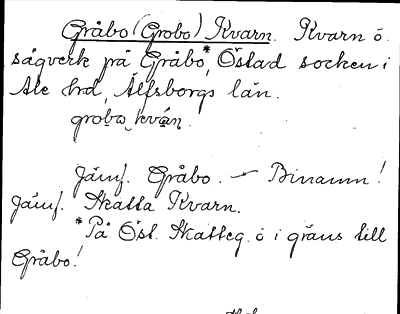 Gråbo (Grobo) Kvarn. Kvarn o.
sågverk på Gråbo*, Östad socken i
Ale hrd, Älfsborgs län.
grobo kván.
Jämf. Gråbo. — Binamn!
Jämf. Skatla Kvarn.
*På Öst. Skatteg. o i gräns till
Gråbo!